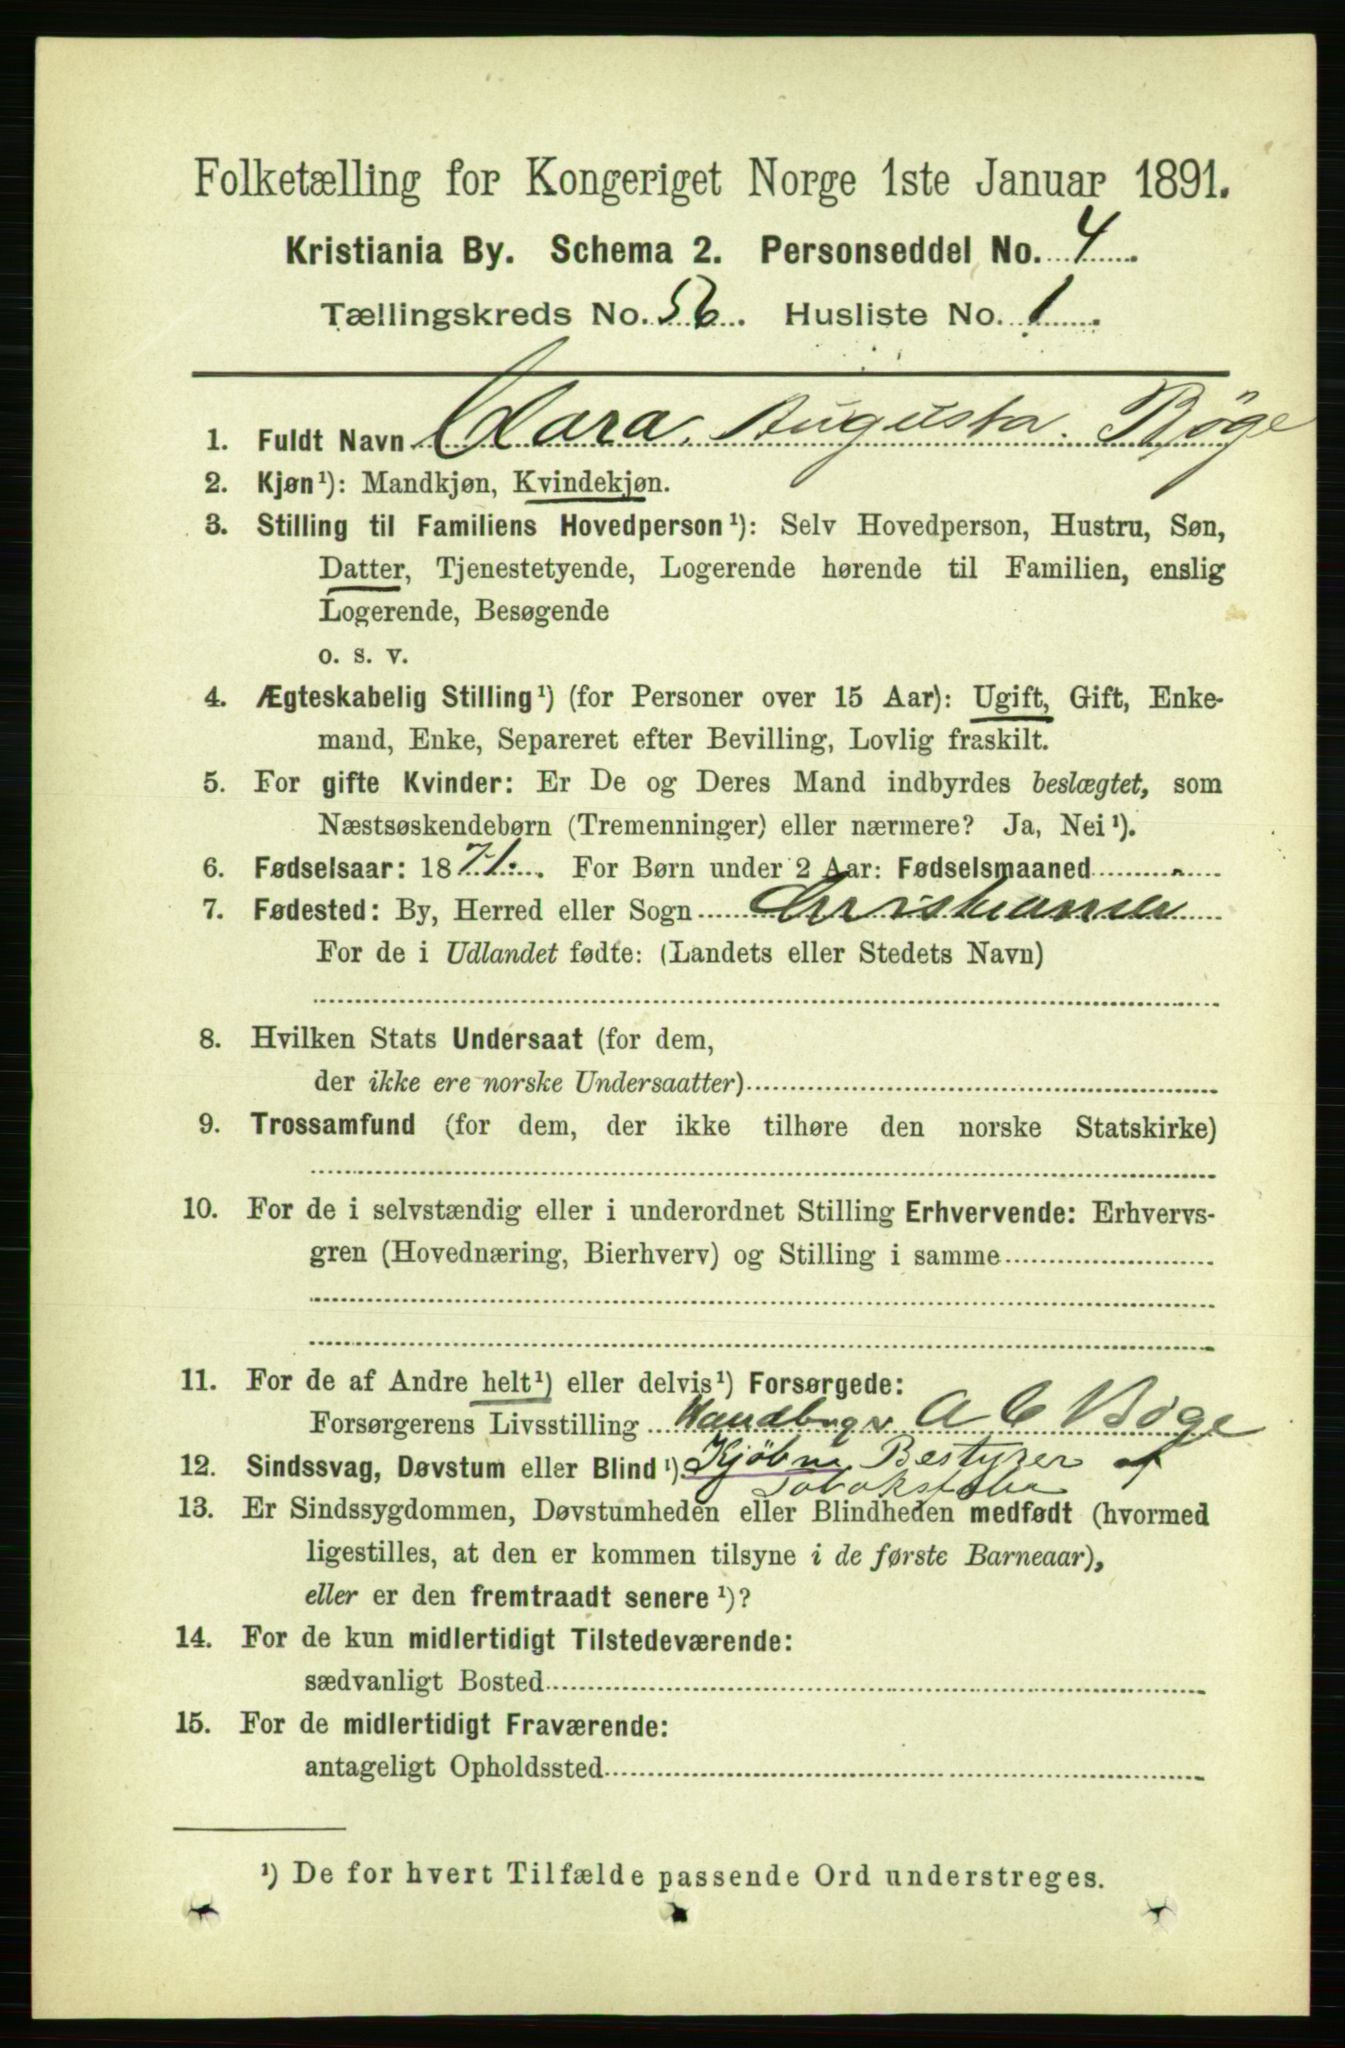 Folketælling for Kongeriget Norge 1ste Januar 1891.
Kristiania By. Schema 2. Personseddel No. 4
Tællingskreds No. 56. Husliste No. 1
1. Fuldt Navn Clara Augusta Bøge
2. Kjøn¹): Mandkjøn, Kvindekjøn.
3. Stilling til Familiens Hovedperson¹): Selv Hovedperson, Hustru, Søn,
Datter, Tjenestetyende, Logerende hørende til Familien, enslig
Logerende, Besøgende
o. s. v.
4. Ægteskabelig Stilling¹) (for Personer over 15 Aar): Ugift, Gift, Enke-
mand, Enke, Separeret efter Bevilling, Lovlig fraskilt.
5. For gifte Kvinder: Er De og Deres Mand indbyrdes beslægtet, som
Næstsøskendebørn (Tremenninger) eller nærmere? Ja, Nei¹).
6. Fødselsaar: 1871. For Børn under 2 Aar: Fødselsmaaned
7. Fødested: By, Herred eller Sogn Christiania
For de i Udlandet fødte: (Landets eller Stedets Navn)
8. Hvilken Stats Undersaat (for dem,
der ikke ere norske Undersaatter)
9. Trossamfund (for dem, der ikke tilhøre den norske Statskirke)
10. For de i selvstændig eller i underordnet Stilling Erhvervende: Erhvervs-
gren (Hovednæring, Bierhverv) og Stilling i samme
11. For de af Andre helt¹) eller delvis¹) Forsørgede:
Forsørgerens Livsstilling A C Bøge
12. Sindssvag, Døvstum eller Blind¹) Bestyrer af
13. Er Sindssygdommen, Døvstumheden eller Blindheden medfødt (hvormed
ligestilles, at den er kommen tilsyne i de første Barneaar),
eller er den fremtraadt senere¹)?
14. For de kun midlertidigt Tilstedeværende:
sædvanligt Bosted
15. For de midlertidigt Fraværende:
antageligt Opholdssted
¹) De for hvert Tilfælde passende Ord understreges.